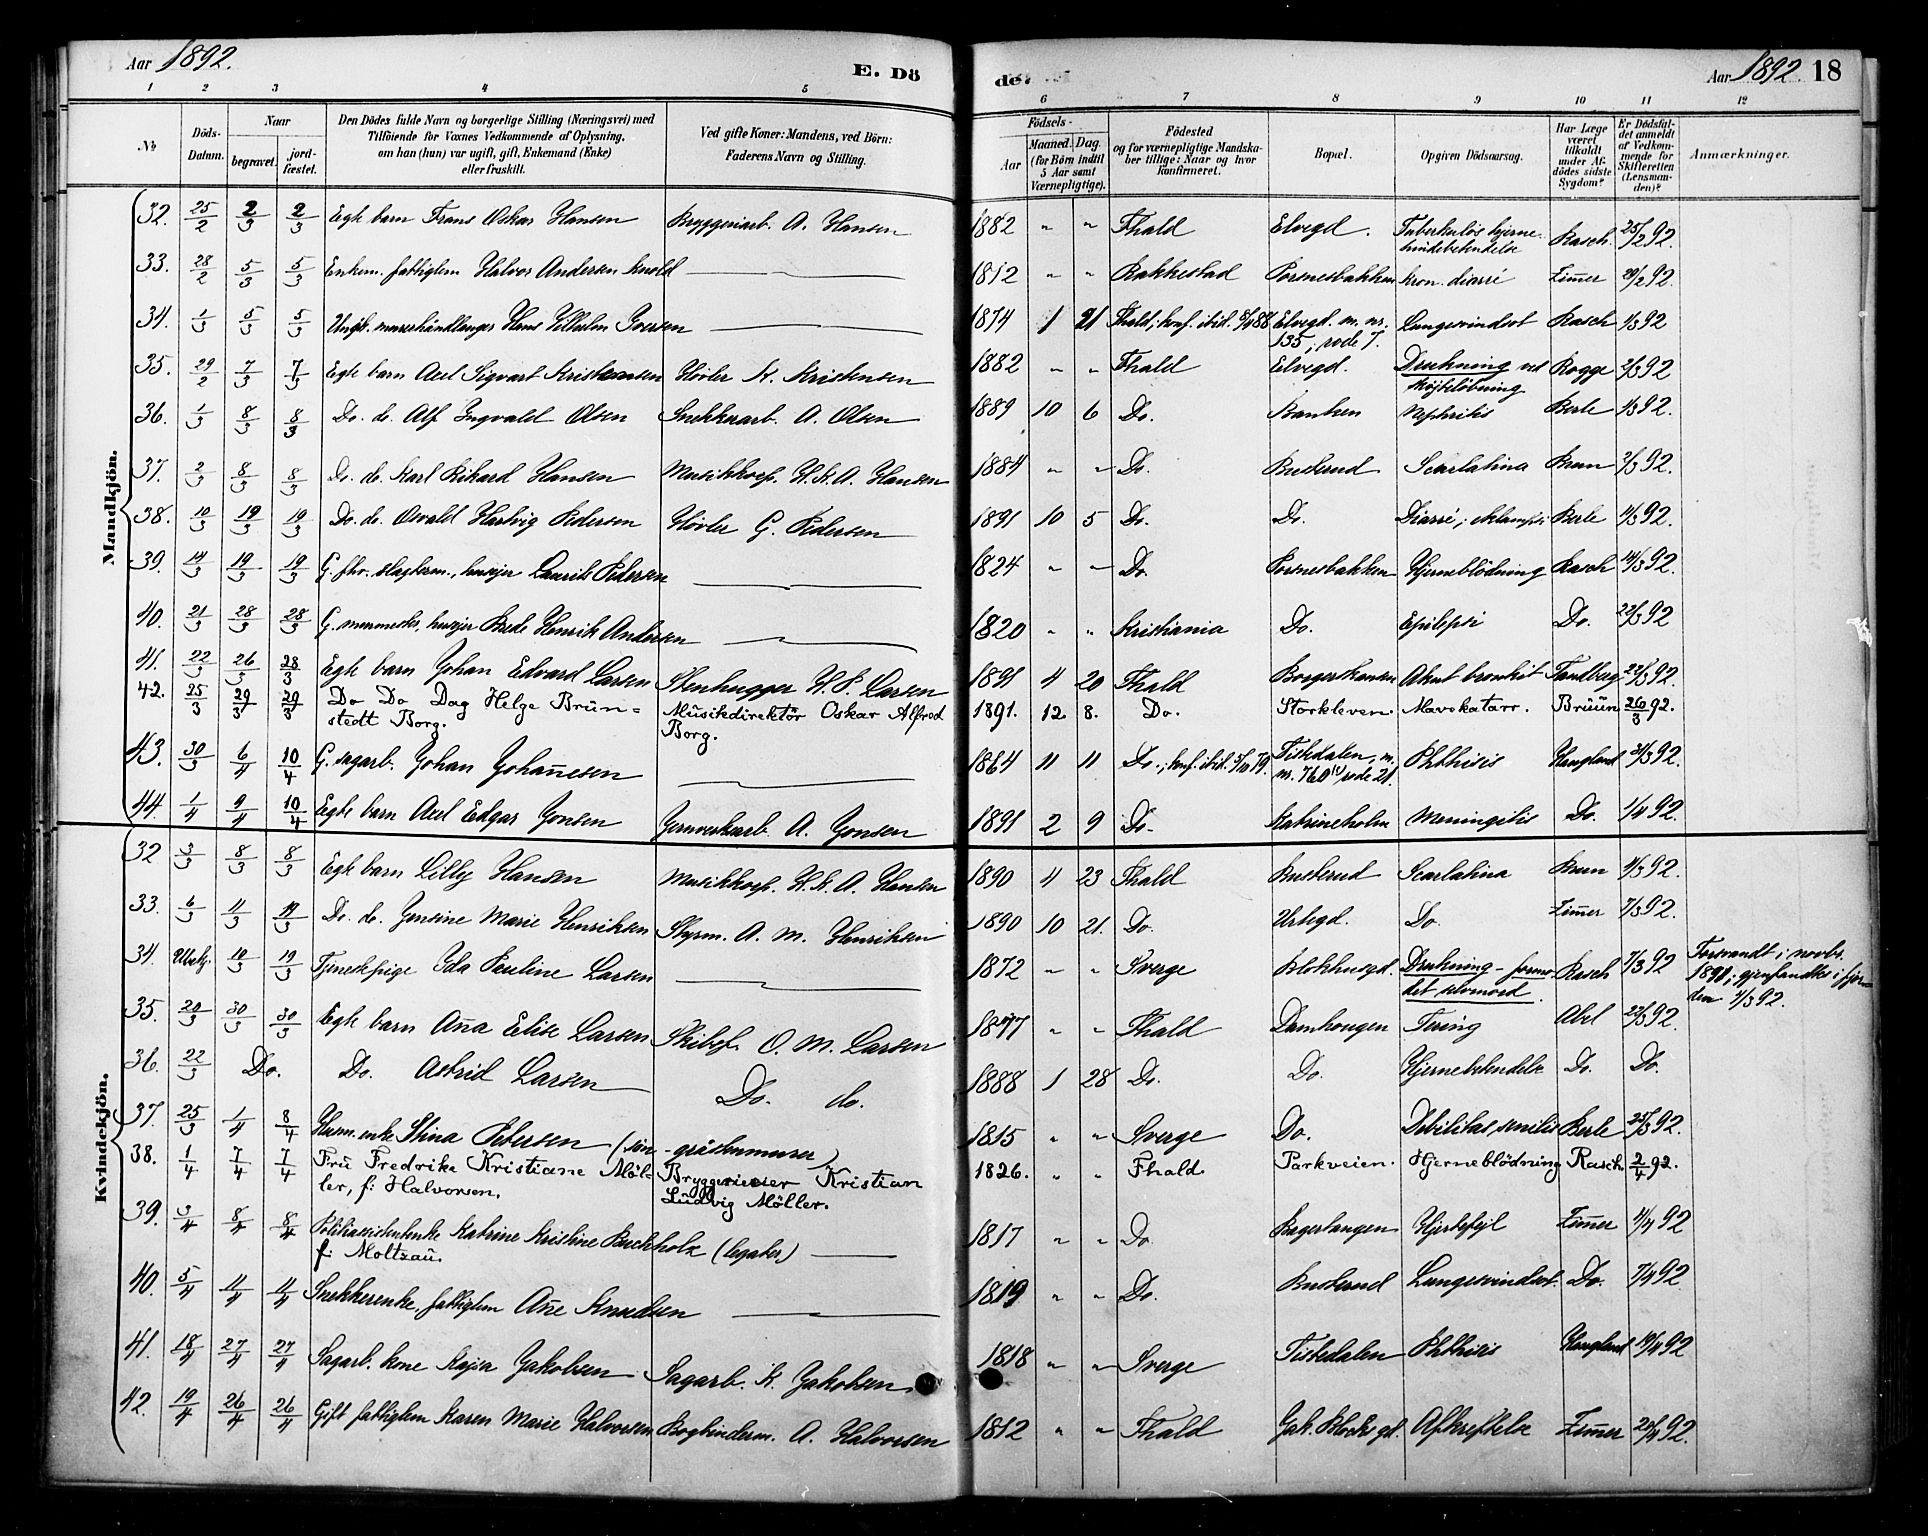 Aar 1892.
E. Dö
de.
Aar 1892. 18
1 2 3 4 5 6 7 8 9 10 11 12
№
Döds-Datum.
Naar
begravet.
jord-fæstet.
Den Dödes fulde Navn og borgerlige Stilling (Næringsvei) med
Tilföiende for Voxnes Vedkommende af Oplysning,
om han (hun) var ugift, gift, Enkemand (Enke)
eller fraskilt.
Ved gifte Koner: Mandens, ved Börn:
Faderens Navn og Stilling.
Födsels-
Aar
Maaned. Dag.
(for Börn indtil
5 Aar samt
Værnepligtige).
Födested
og for værnepligtige Mandska-
ber tillige: Naar og hvor
konfirmeret.
Bopæl.
Opgiven Dödsaarsag.
Har Læge
været
tilkaldt
under Af-
dödes sidste
Sygdom?
Er Dödsfal-
det anmeldt
af Vedkom-
mende for
Skifteretten
(Lensman-
den)?
Anmærkninger.
Mandkjön.
32. 25/2 2/3 2/3 Egte barn Frans Oskar Hansen Bryggeriarb. A. Hansen 1882 " " Fhald Elvegd. Tuberkuløs hjerne- Rasch 25/2 92.
hindebetendelse
33. 28/2 5/3 5/3 Enkem. fattiglem Halvor Andersen 1812 " " Rakkestad Porsnesbakken kron. diarré Zimer 29/2 92.
34. 1/3 5/3 5/3 Ungk. murerhåndlanger Hans Vilhelm Iversen 1874 1 21 Fhald; konf. ibid. Elvegd. m. nr. Lungesvindsot Rasch 1/3 92
135, rode 7.
35. 29/2 7/3 7/3 Egte barn Axel Sigvart Kristensen Høvler K. Kristensen 1882 " " Fhald Elvegd. Drukning ved Rogge 2/3 92
skøjteløbning
36. 1/3 8/3 8/3 Do. do. Alf Ingvald Olsen Snekkerarb. A. Olsen 1889 10 6 Do. Banken Nephritis Berle 1/3 92.
37. 2/3 8/3 8/3 Do. do. Karl Rikard Hansen Musikkorp. H. K. A. Hansen 1884 " " Do. Busterud Scarlatina Brun 2/3 92.
38. 10/3 19/3 19/3 Do. do. Osvald Hartvig Pedersen Høvler G. Pedersen 1891 10 5 Do. Do. Diarré, eklampsi Berle 11/3 92.
39. 14/3 19/3 19/3 G. fhv. slagterm., husejer Laurits Pedersen 1824 " " Do. Porsnesbakken Hjerneblödning Rasch 14/3 92.
40. 21/3 28/3 28/3 G. murmester, husejer Brede Henrik Andersen 1820 " " Kristiania Do. Epilepsi Do. 22/3 92
41. 22/3 26/3 28/3 Egte barn Johan Edvard Larsen Stenhugger H. P. Larsen 1891 4 20 Fhald Borgerskansen Akut bronkit Tandberg 22/3 92.
42. 25/3 29/3 29/3 Do Do Dag Helge Brün= Müsikdirektör Oskar Alfred 1891. 12 8. Do. Storkleven. Mavekatarr. Brüün 26/3 92.
stedt Borg. Borg.
43. 30/3 6/4 10/4 G. sagarb. Johan Johanesen 1864 11 11 Do.; konf. ibid. 5/10 79. Tistedalen, m. Phthisis Haugland 31/3 92.
nr. 760 rode 21.
44. 1/4 9/4 10/4 Egte barn Axel Edgar Jonsen Jernverksarb. A. Jonsen 1891 2 9 Do. Katrineholm Meningitis Do. 1/4 92.
Kvindekjön.
32 3/3 8/3 8/3 Egte barn Lilly Hansen Musikkorp. H. K. A. Hansen 1890 4 23 Fhald Busterud Scarlatina Brun 4/3 92.
33. 6/3 11/3 19/3 Do. do. Jensine Marie Henriksen Styrm. A. M. Henriksen 1890 10 21. Do. Urtegd. Do. Zimer 7/3 92.
34. Ubekj. 10/3 19/3 Tjenestepige Ida Pauline Larsen 1872 " " Sverge Blokhusgd. Drukning - formo- Rasch 7/3 92 Forsvandt i novbr.
det selvmord. 1891; gjenfandtes i fjor-
den 4/3 92.
35. 20/3 30/3 30/3 Egte barn Aña Elise Larsen Skibsf. O. M. Larsen 1877 " " Fhald Damhougen Tering Abel 22/3 92.
36. 22/3 Do. Do. Astrid Larsen Do. do. 1888 1 28 Do. Do. Hjernebetendelse Do. Do.
37. 25/3 1/4 8/4 Husm. enke Stina Petersen 1815 " " Sverge Do. Debilitas senilis Berle 25/3 92.
38. 1/4 7/4 7/4 Frü Fredrike Kristiane Möl- Bryggerieier Kristian 1826. " " Fhald Parkveien. Hjerneblödning Rasch 2/4 92.
ler, f: Halvorsen. Lüdvig Möller.
39. 3/4 8/4 8/4 Politiassistentenke Katrine Kristine Buchholz (legater) 1817 " " Do Bagertangen Hjertefejl Zimer 4/4 92
f: Moltzaü.
40. 5/4 11/4 11/4 Snekkerenke, fattiglem Añe Knudsen 1819 " " Do. Busterud Lungesvindsot. Do. 7/4 92
41. 18/4 27/4 27/4 Sagarb. kone Kajsa Jakobsen Sagarb. K. Jakobsen 1818 " " Sverge Tistedalen Phthisis Haugland 19/4 92
42. 19/4 26/4 26/4 Gift fattiglem Karen Marie Halvorsen Bogbinderm. A. Halvorsen 1812 " " Fhald Jak. Blochs gd. Afkræftelse Zimer 20/4 92.